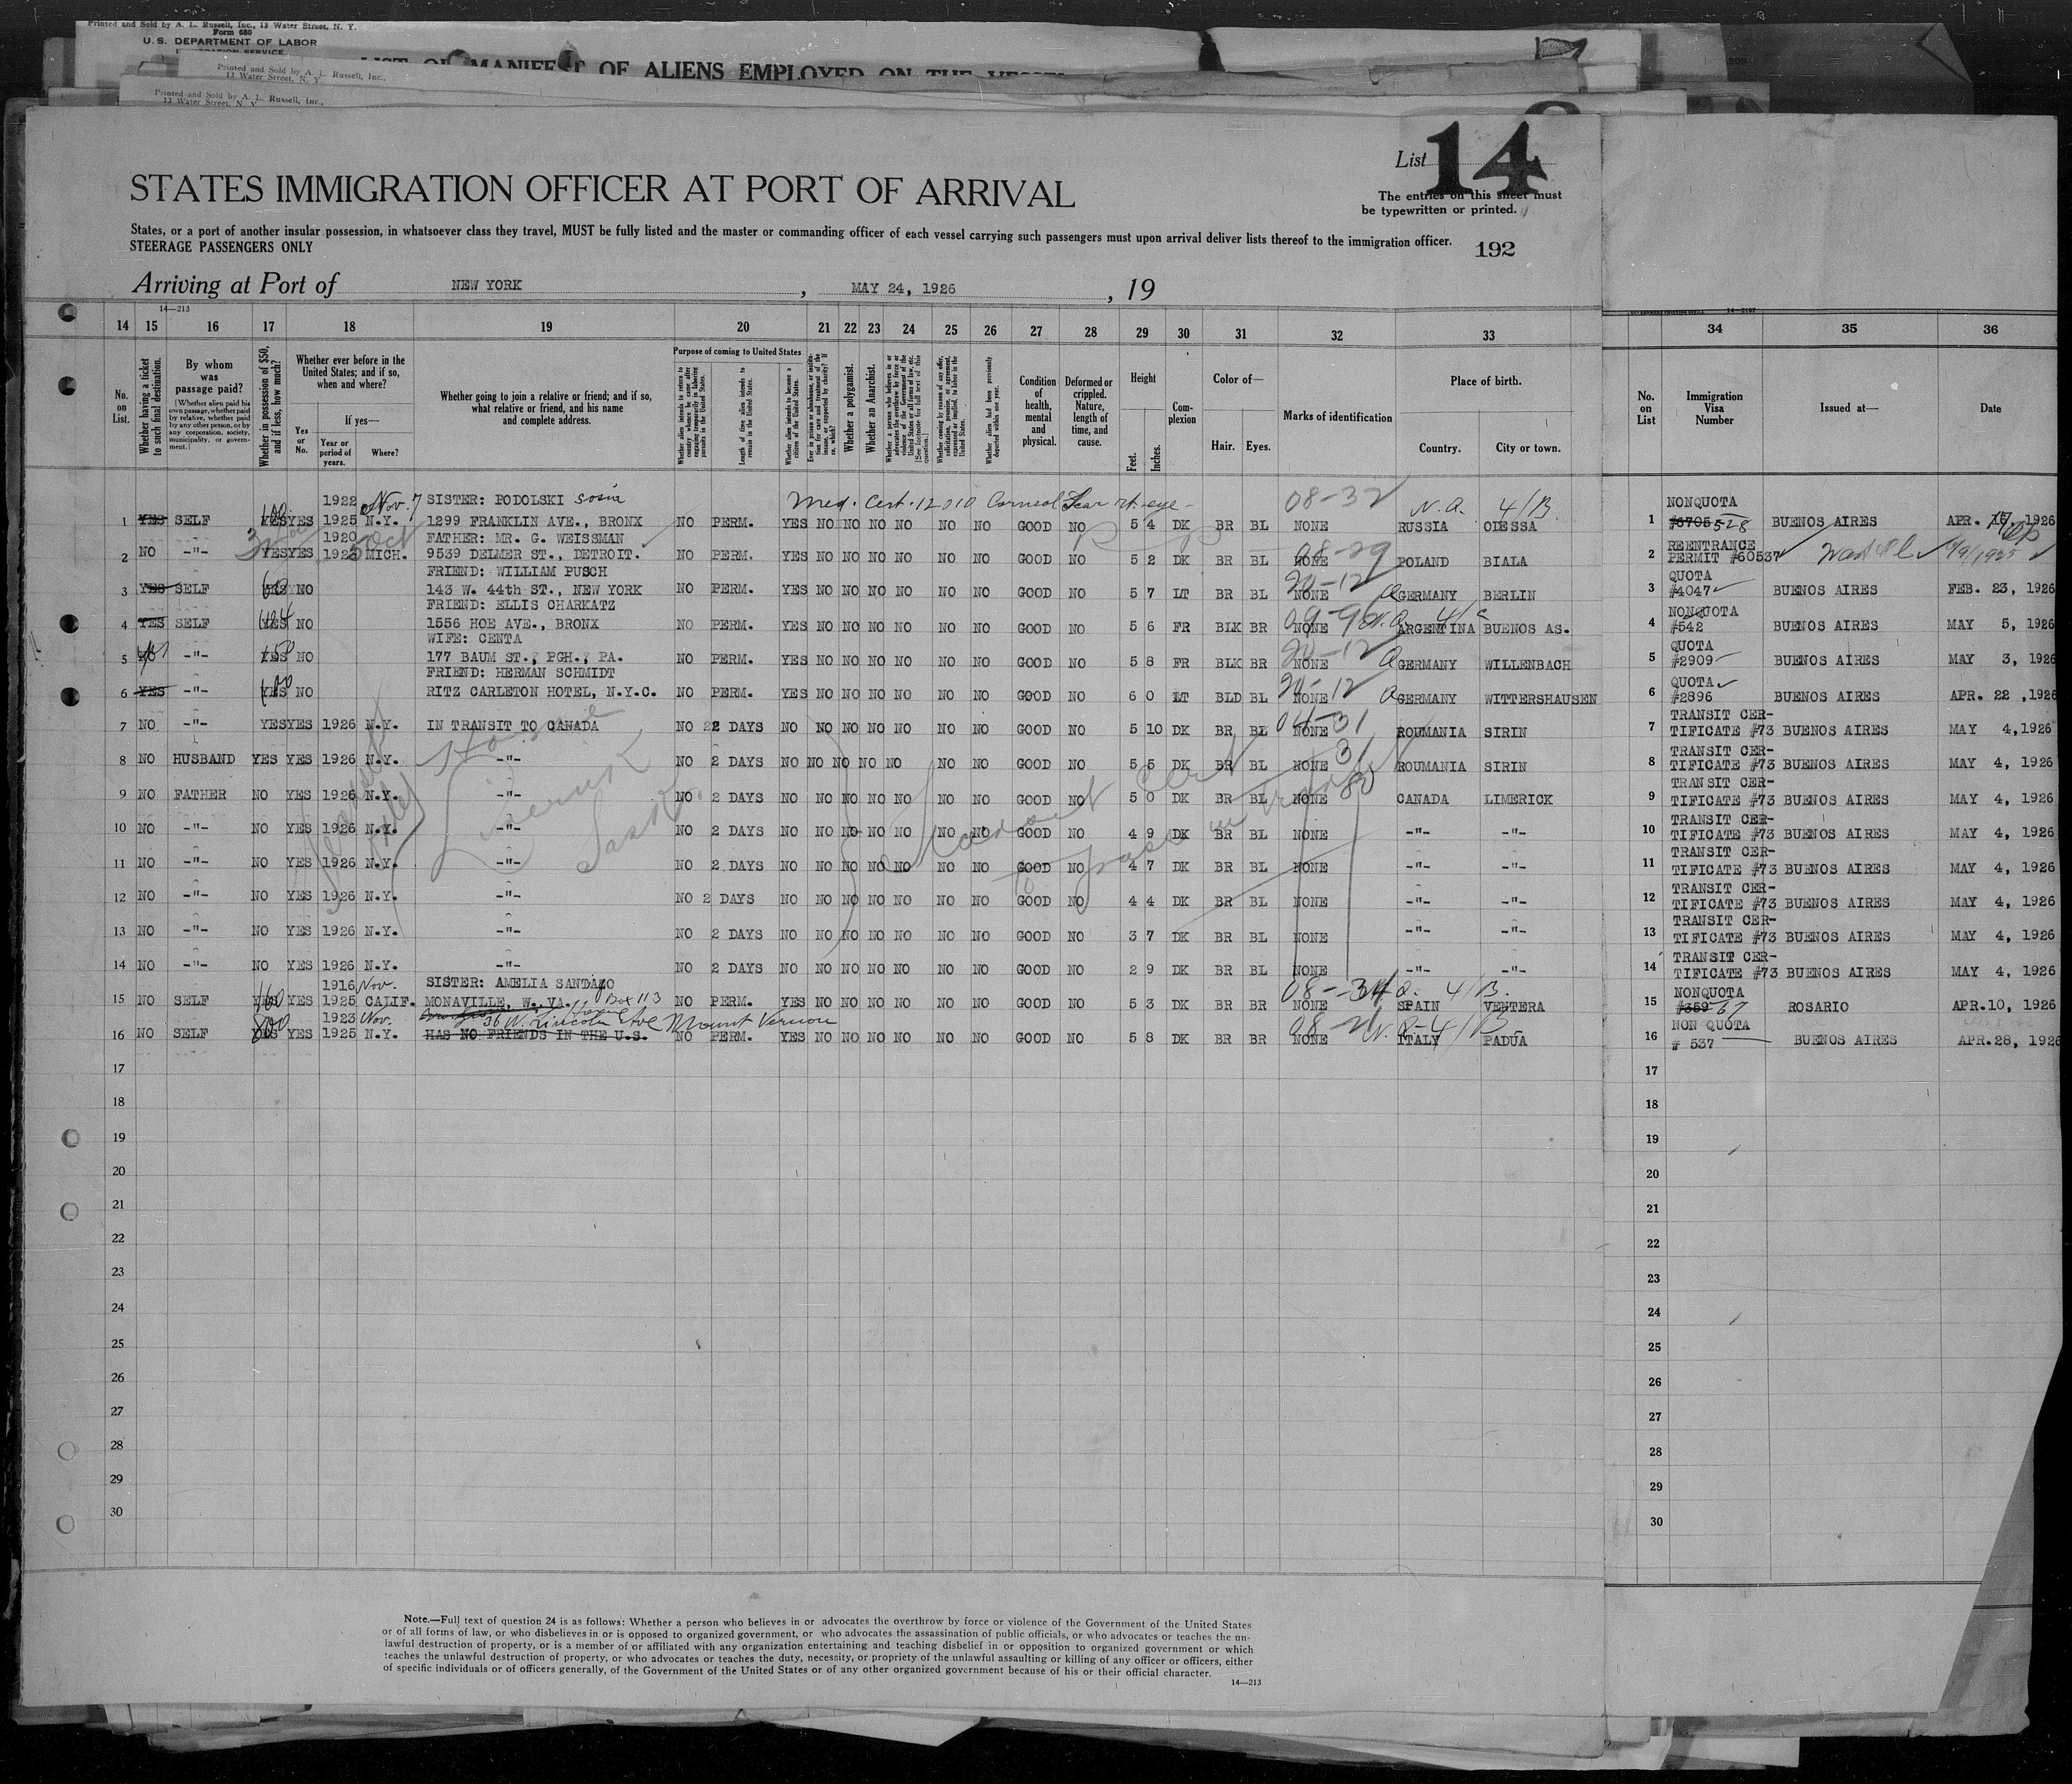 Printed and Sold by A. L. Russell, Inc., 13 Water Street, N. Y.
Form 680
U. S. DEPARTMENT OF LABOR
LIST OR MANIFEST OF ALIENS EMPLOYED ON THE VESSEL
Printed and Sold by A. L. Russell, Inc.,
13 Water Street, N. Y.
Printed and Sold by A. L. Russell, Inc.,
13 Water Street, N. Y.
List 14
STATES IMMIGRATION OFFICER AT PORT OF ARRIVAL
The entries on this sheet must
be typewritten or printed.
States, or a port of another insular possession, in whatsoever class they travel, MUST be fully listed and the master or commanding officer of each vessel carrying such passengers must upon arrival deliver lists thereof to the immigration officer.
STEERAGE PASSENGERS ONLY
192
Arriving at Port of NEW YORK, MAY 24, 1926, 19
14—213
14 15 16 17 18 19 20 21 22 23 24 25 26 27 28 29 30 31 32 33 34 35 36
No. on List.
Whether having a ticket to such final destination.
By whom was passage paid?
[Whether alien paid his own passage, whether paid by relative, whether paid by any other person, or by any corporation, society, municipality, or government.]
Whether in possession of $50, and if less, how much?
Whether ever before in the United States; and if so, when and where?
Yes or No.
If yes—
Year or period of years.
Where?
Whether going to join a relative or friend; and if so, what relative or friend, and his name and complete address.
Purpose of coming to United States
Whether alien intends to return to country whence he came after engaging temporarily in laboring pursuits in the United States.
Length of time alien intends to remain in the United States.
Whether alien intends to become a citizen of the United States.
Whether a polygamist.
Whether an Anarchist.
Condition of health, mental and physical.
Deformed or crippled. Nature, length of time, and cause.
Height
Feet. Inches.
Complexion
Color of—
Hair. Eyes.
Marks of identification
Place of birth.
Country. City or town.
No. on List
Immigration Visa Number
Issued at—
Date
1922 Nov. SISTER: PODOLSKI Sosia Med. Cert. 12010 Corneal Scar rt. eye 08-32 N.A. 4/B NONQUOTA
1 YES SELF 100 YES YES 1925 N.Y. 1299 FRANKLIN AVE., BRONX NO PERM. YES NO NO NO NO NO NO GOOD NO 5 4 DK BR BL NONE RUSSIA ODESSA 1 528 BUENOS AIRES APR. 1926
1920 Oct FATHER: MR. G. WEISSMAN 08-29 REENTRANCE
2 NO -"- YES YES 1925 MICH. 9539 DELMER ST., DETROIT. NO PERM. YES NO NO NO NO NO NO GOOD NO 5 2 DK BR BL NONE POLAND BIALA 2 PERMIT #60537
FRIEND: WILLIAM PUSCH 20-12 QUOTA
3 YES SELF YES NO 143 W. 44th ST., NEW YORK NO PERM. YES NO NO NO NO NO NO GOOD NO 5 7 LT BR BL NONE GERMANY BERLIN 3 #4047 BUENOS AIRES FEB. 23, 1926
FRIEND: ELLIS CHARKATZ 09-96 NONQUOTA
4 YES SELF YES NO 1556 HOE AVE., BRONX NO PERM. YES NO NO NO NO NO NO GOOD NO 5 6 FR BLK BR NONE ARGENTINA BUENOS AS. 4 #542 BUENOS AIRES MAY 5, 1926
WIFE: CENTA 20-12 QUOTA
5 NO -"- YES NO 177 BAUM ST., PGH., PA. NO PERM. YES NO NO NO NO NO NO GOOD NO 5 8 FR BLK BR NONE GERMANY WILLENBACH 5 #2909 BUENOS AIRES MAY 3, 1926
FRIEND: HERMAN SCHMIDT 20-12 QUOTA
6 YES -"- YES NO RITZ CARLETON HOTEL, N.Y.C. NO PERM. YES NO NO NO NO NO NO GOOD NO 6 0 LT BLD BL NONE GERMANY WITTERSHAUSEN 6 #2896 BUENOS AIRES APR. 22, 1926
04-31 TRANSIT CER-
7 NO -"- YES YES 1926 N.Y. IN TRANSIT TO CANADA NO 2 DAYS NO NO NO NO NO NO NO GOOD NO 5 10 DK BR BL NONE ROUMANIA SIRIN 7 TIFICATE #73 BUENOS AIRES MAY 4, 1926
31 TRANSIT CER-
8 NO HUSBAND YES YES 1926 N.Y. -"- NO 2 DAYS NO NO NO NO NO NO NO GOOD NO 5 5 DK BR BL NONE ROUMANIA SIRIN 8 TIFICATE #73 BUENOS AIRES MAY 4, 1926
80 TRANSIT CER-
9 NO FATHER NO YES 1926 N.Y. -"- NO 2 DAYS NO NO NO NO NO NO NO GOOD NO 5 0 DK BR BL NONE CANADA LIMERICK 9 TIFICATE #73 BUENOS AIRES MAY 4, 1926
TRANSIT CER-
10 NO -"- NO YES 1926 N.Y. -"- NO 2 DAYS NO NO NO NO NO NO NO GOOD NO 4 9 DK BR BL NONE -"- -"- 10 TIFICATE #73 BUENOS AIRES MAY 4, 1926
TRANSIT CER-
11 NO -"- NO YES 1926 N.Y. -"- NO 2 DAYS NO NO NO NO NO NO NO GOOD NO 4 7 DK BR BL NONE -"- -"- 11 TIFICATE #73 BUENOS AIRES MAY 4, 1926
TRANSIT CER-
12 NO -"- NO YES 1926 N.Y. -"- NO 2 DAYS NO NO NO NO NO NO NO GOOD NO 4 4 DK BR BL NONE -"- -"- 12 TIFICATE #73 BUENOS AIRES MAY 4, 1926
TRANSIT CER-
13 NO -"- NO YES 1926 N.Y. -"- NO 2 DAYS NO NO NO NO NO NO NO GOOD NO 3 7 DK BR BL NONE -"- -"- 13 TIFICATE #73 BUENOS AIRES MAY 4, 1926
TRANSIT CER-
14 NO -"- NO YES 1926 N.Y. -"- NO 2 DAYS NO NO NO NO NO NO NO GOOD NO 2 9 DK BR BL NONE -"- -"- 14 TIFICATE #73 BUENOS AIRES MAY 4, 1926
1916 Nov. SISTER: AMELIA 08-34 4/B. NONQUOTA
15 NO SELF YES YES 1925 CALIF. MONAVILLE, W. VA. Box 113 NO PERM. YES NO NO NO NO NO NO GOOD NO 5 3 DK BR BR NONE SPAIN VENTERA 15 #359 67 ROSARIO APR.10, 1926
1923 Nov. 36 W. Lincoln Ave Mount Vernon 08-21 4/B NON QUOTA
16 NO SELF 800 YES YES 1925 N.Y. HAS NO FRIENDS IN THE U.S. NO PERM. YES NO NO NO NO NO NO GOOD NO 5 8 DK BR BR NONE ITALY PADUA 16 # 537 BUENOS AIRES APR.28, 1926
Limerick
Sask.
17 17
18 18
19 19
20 20
21 21
22 22
23 23
24 24
25 25
26 26
27 27
28 28
29 29
30 30
Note.—Full text of question 24 is as follows: Whether a person who believes in or advocates the overthrow by force or violence of the Government of the United States
or of all forms of law, or who disbelieves in or is opposed to organized government, or who advocates the assassination of public officials, or who advocates or teaches the un-
lawful destruction of property, or is a member of or affiliated with any organization entertaining and teaching disbelief in or opposition to organized government or which
teaches the unlawful destruction of property, or who advocates or teaches the duty, necessity, or propriety of the unlawful assaulting or killing of any officer or officers, either
of specific individuals or of officers generally, of the Government of the United States or of any other organized government because of his or their official character.
14—213